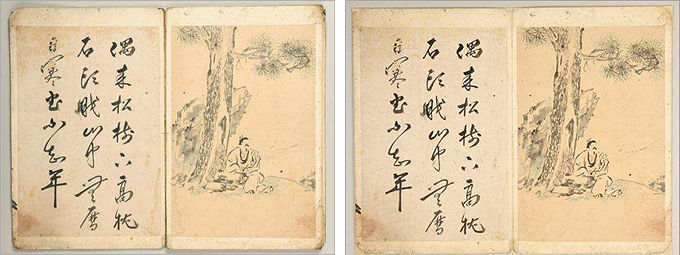 偶来松樹下高枕
石頭眠山中無暦
日寒尽不知年
偶来松樹下高枕
石頭眠山中無暦
日寒尽不知年